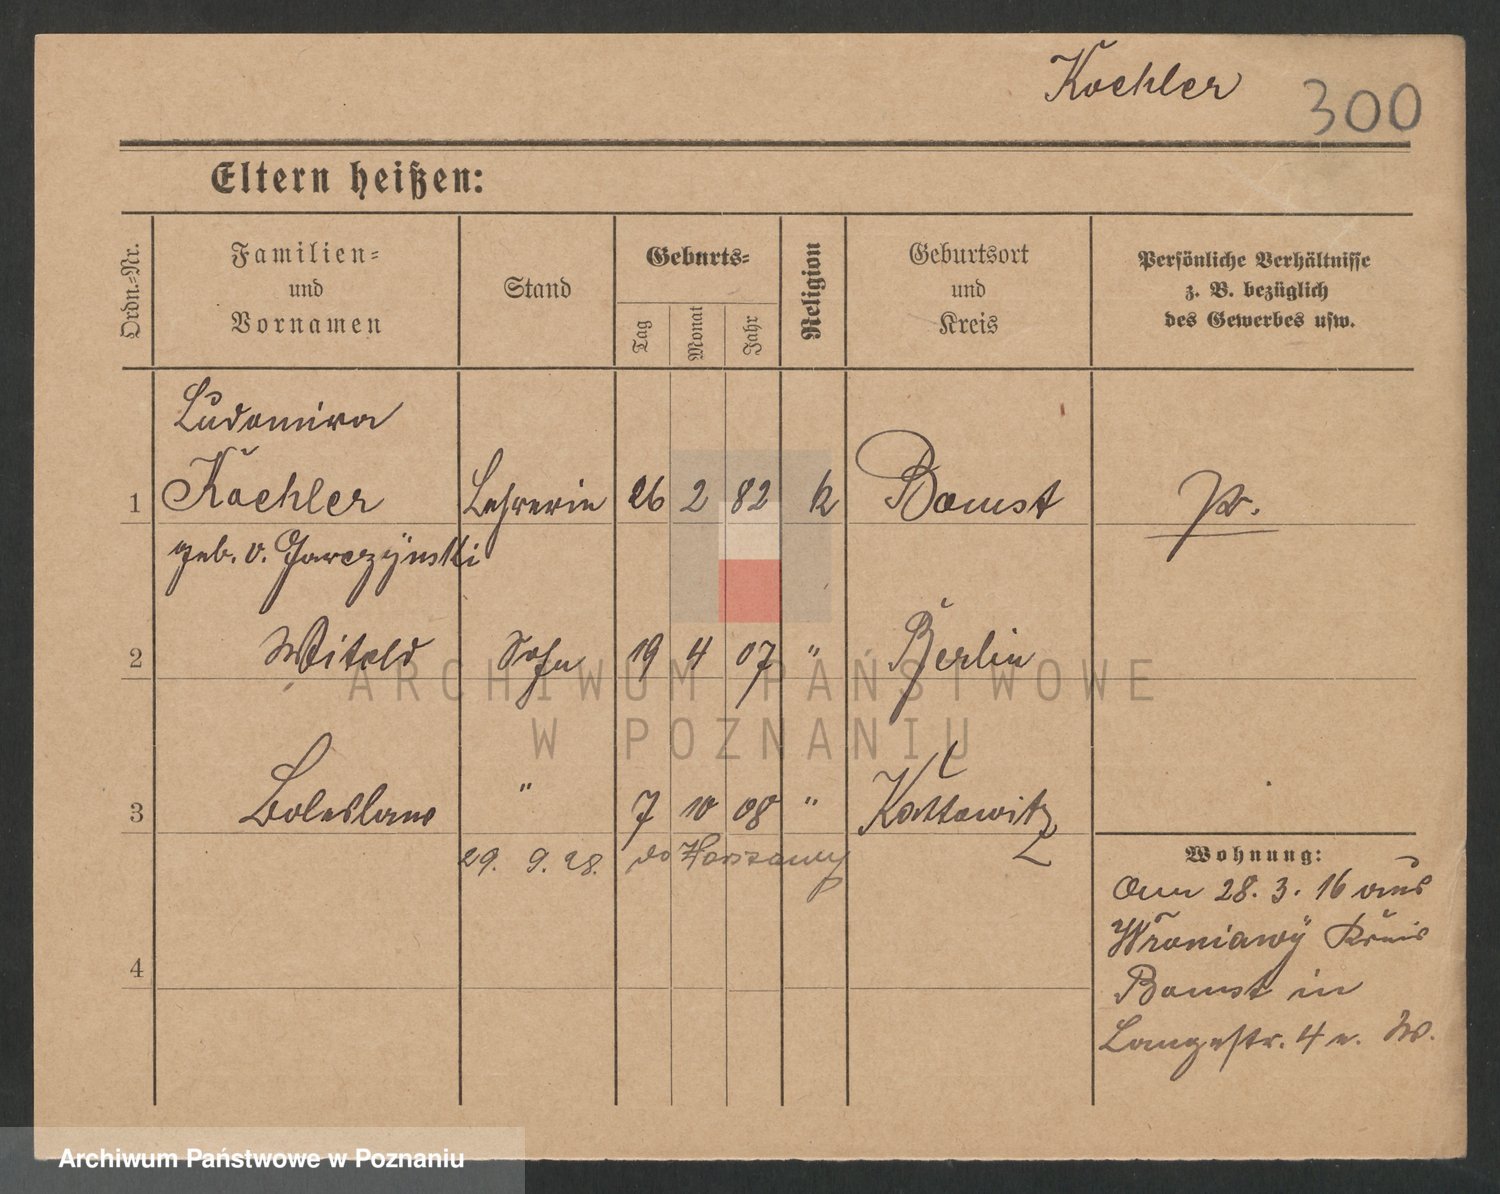 Koehler 300
Eltern heißen:
Ordn.=Nr. Familien= und Vornamen Stand Geburts= Tag Monat Jahr Religion Geburtsort und Kreis Persönliche Verhältnisse z. B. bezüglich des Gewerbes usw.
Ludomira
1 Koehler Lehrerin 26 2 82 k Bomst Pr.
geb. v. Jarczynski
2 Witold Sohn 19 4 07 " Berlin
3 Boleslaus " 7 10 08 " Kattowitz
29. 9. 28. do Warszawy
4
Wohnung:
Am 28. 3. 16 aus
Wroniawy Kreis
Bomst in
Langestr. 4 e. W.
ARCHIWUM PAŃSTWOWE
W POZNANIU
Archiwum Państwowe w Poznaniu